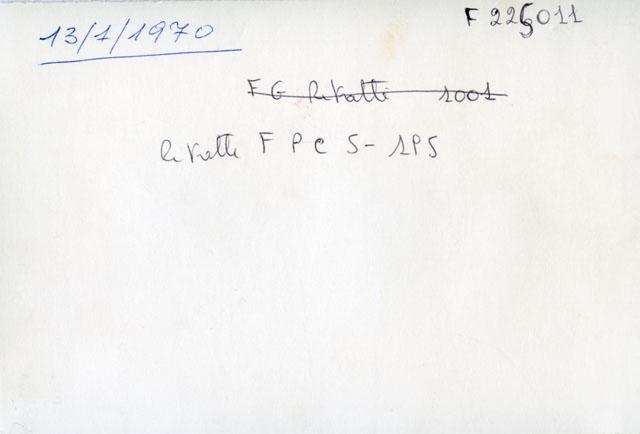 13/1/1970
F 225011
F G Ritratti 1001
Ritratti F P C S - 1P5